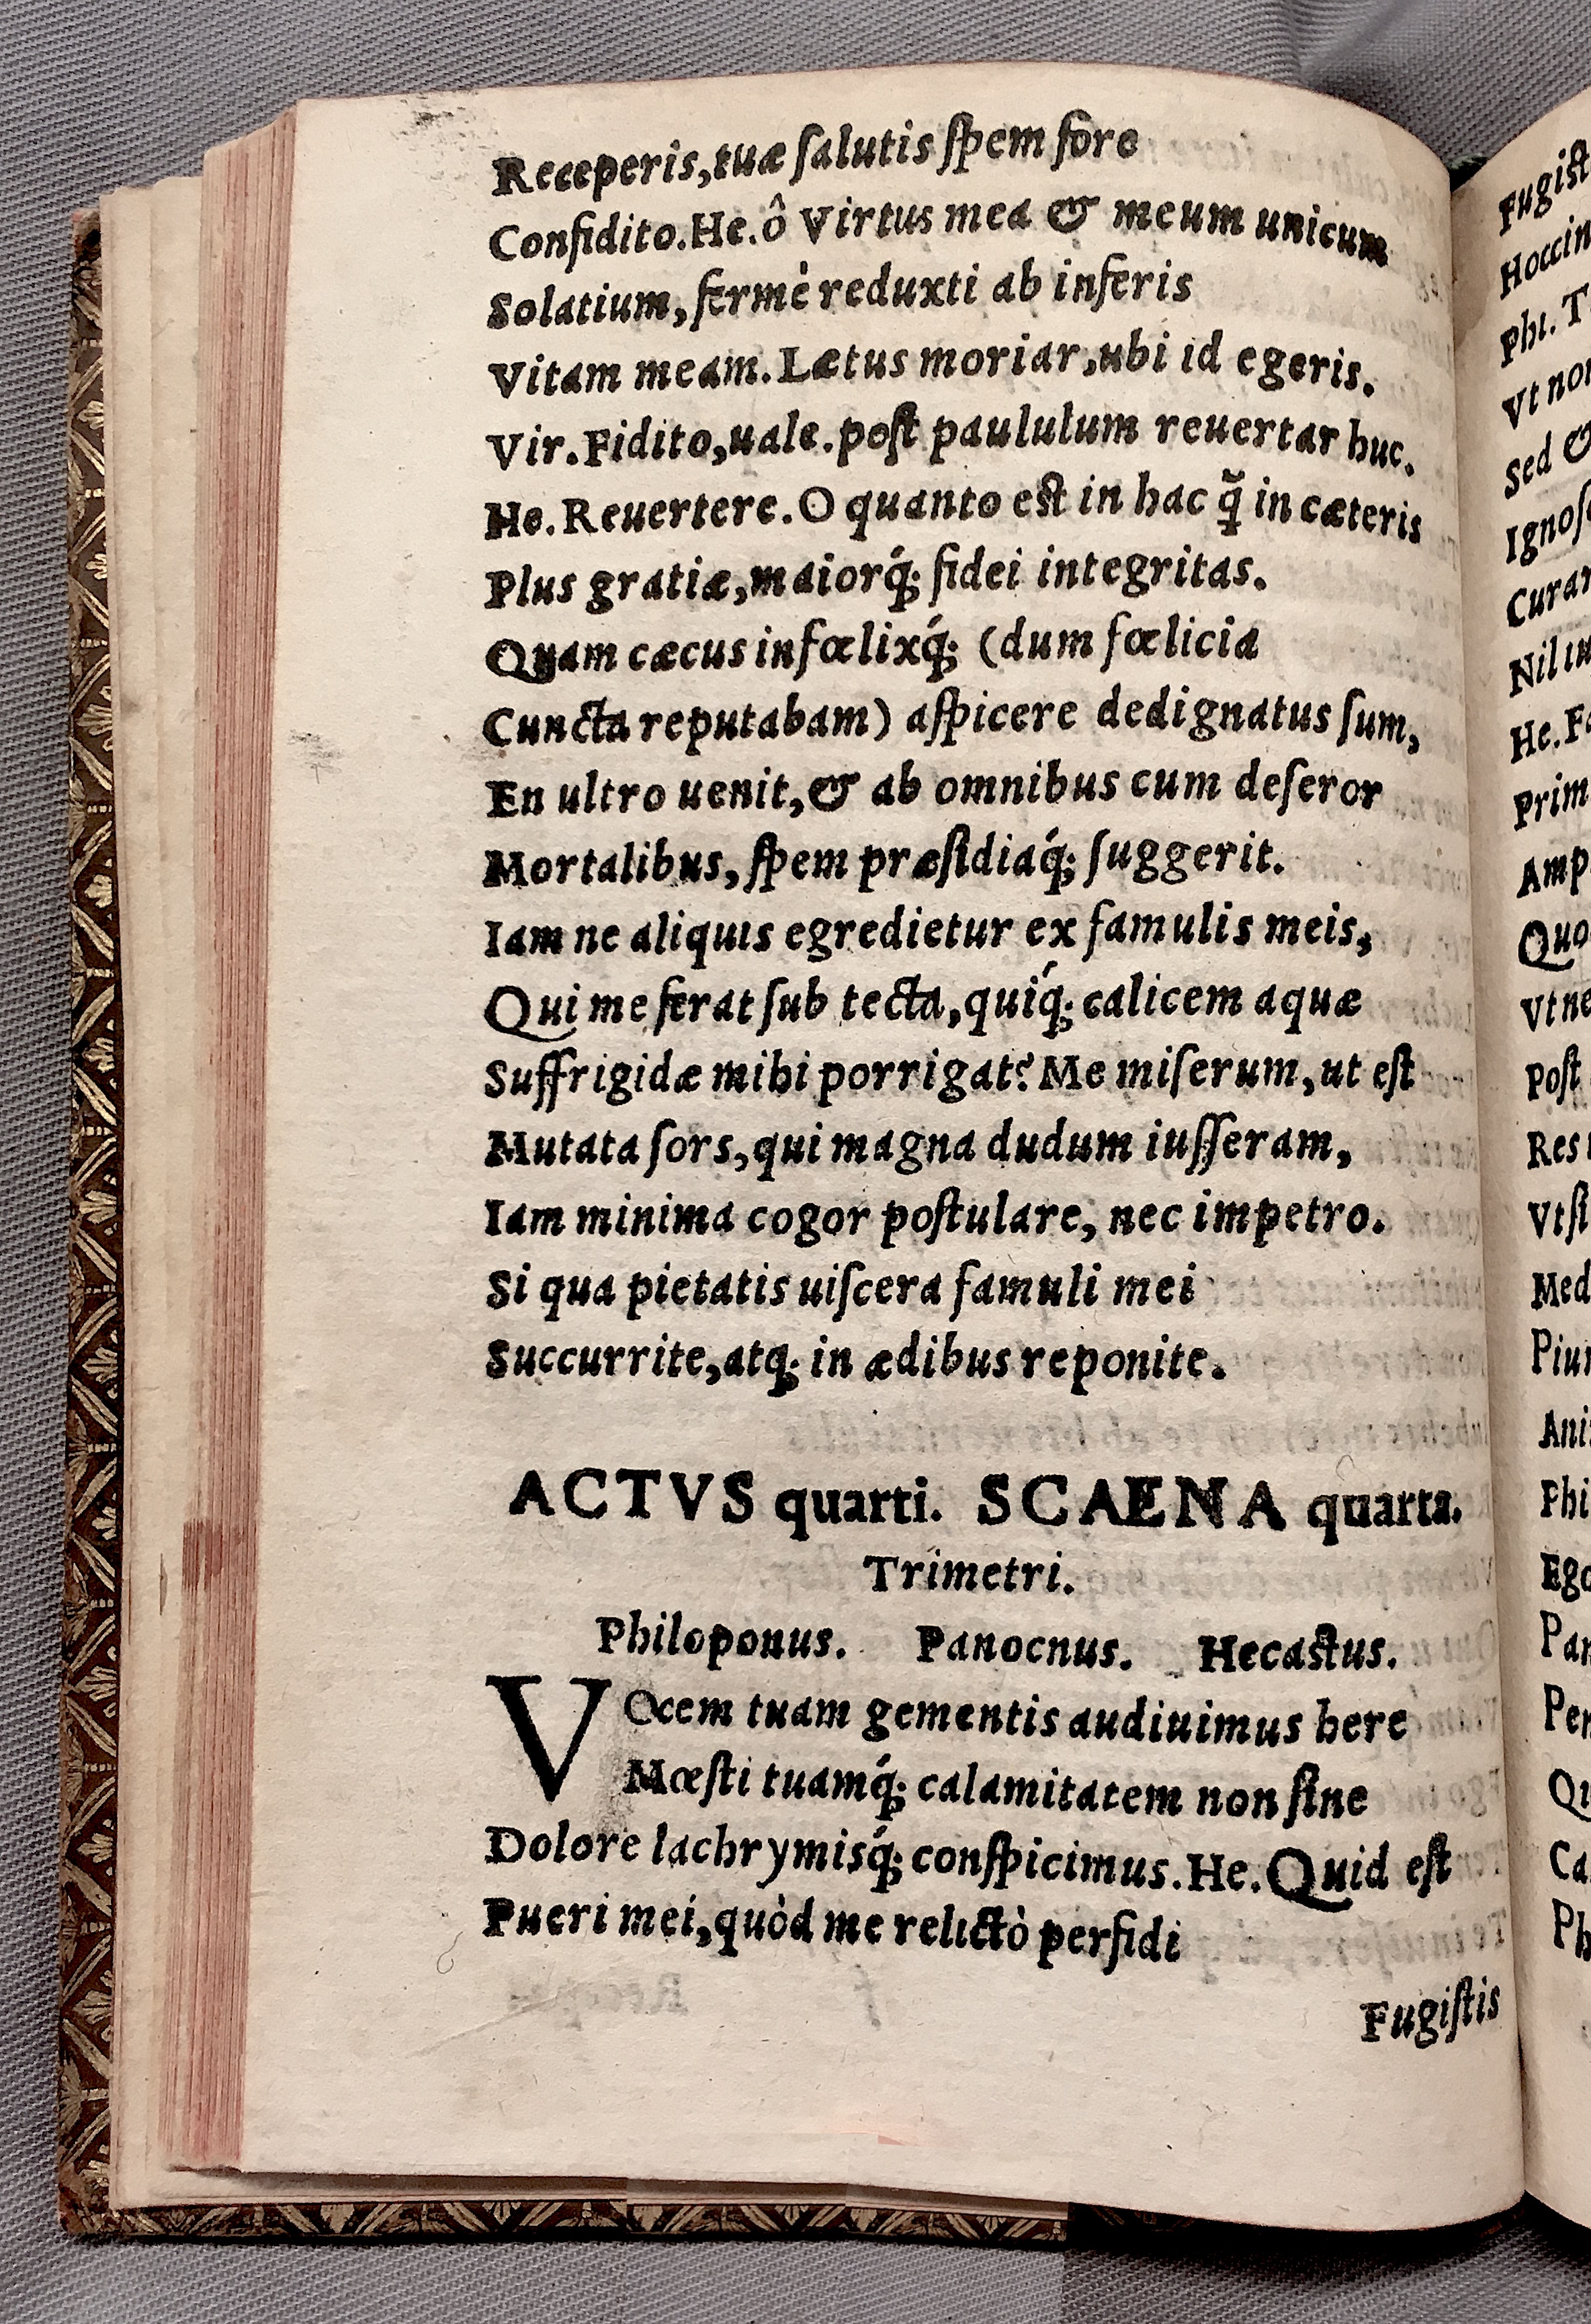 Receperis, tuæ ſalutis ſpem fore
Confidito. He. ô Virtus mea & meum unicum
Solatium, fermè reduxti ab inferis
Vitam meam. Lætus moriar, ubi id egeris.
Vir. Fidito, uale. poſt paululum reuertar huc.
He. Reuertere. O quanto eſt in hac q̃ in cæteris
Plus gratiæ, maiorq́; fidei integritas.
Quam cæcus infœlixq́; (dum fœlicia
Cuncta reputabam) aſpicere dedignatus ſum,
En ultro uenit, & ab omnibus cum deſeror
Mortalibus, ſpem præſidiaq́; ſuggerit.
Iam ne aliquis egredietur ex famulis meis,
Qui me ferat ſub tecta, quiq́; calicem aquæ
Suffrigidæ mihi porrigat? Me miſerum, ut eſt
Mutata ſors, qui magna dudum iuſſeram,
Iam minima cogor poſtulare, nec impetro.
Si qua pietatis uiſcera famuli mei
Succurrite, atq; in ædibus reponite.
ACTVS quarti. SCAENA quarta.
Trimetri.
Philoponus. Panocnus. Hecaſtus.
VOcem tuam gementis audiuimus here
Mœſti tuamq́; calamitatem non ſine
Dolore lachrymisq́; conſpicimus. He. Quid eſt
Pueri mei, quòd me relictò perfidi
Fugiſtis
Fugiſt
Hoccin
Phi. T
Vt non
Sed &
Ignoſ
Curar
Nil in
He. Fa
Prim
Amp
Quo
Vt ne
Poſt
Res
Vt ſi
Med
Piu
Ani
Phi
Ego
Pan
Per
Qu
Ca
Ph